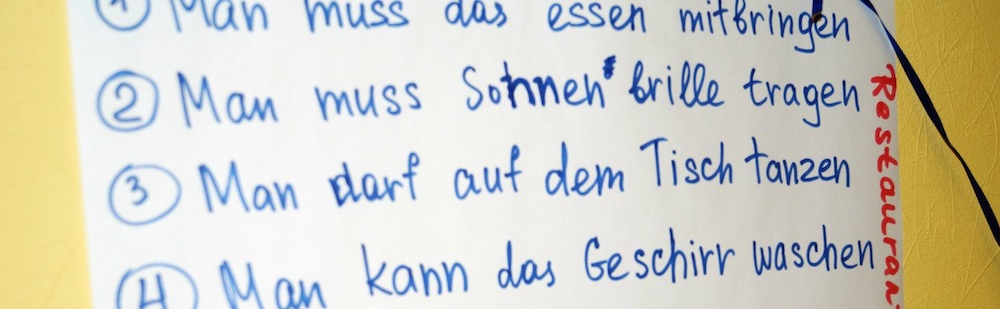 1 Man muss das essen mitbringen
2 Man muss Sonnen brille tragen
3 Man darf auf dem Tisch tanzen
4 Man kann das Geschirr waschen
Restaurant